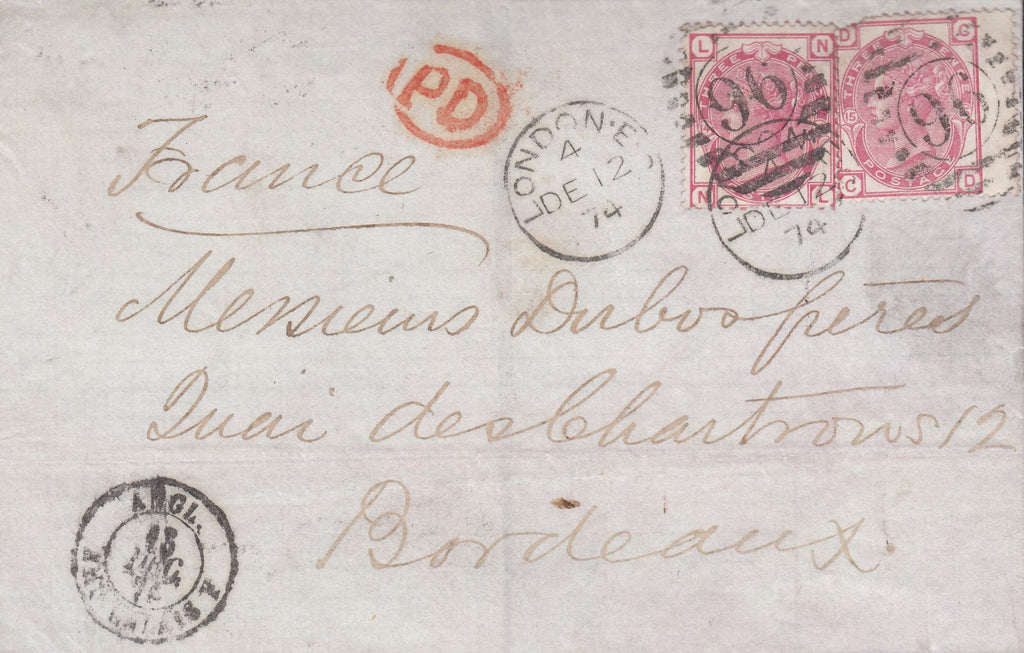 L N
THREE PE
96
N L
D C
THREE
15
96
POSTAGE
C D
PD
LONDON·E
4
DE 12
74
LO
4
DE 12
74
France
Messieurs Dubos frères
Quai des Chartrons 12
Bordeaux.
ANGL.
CALAIS